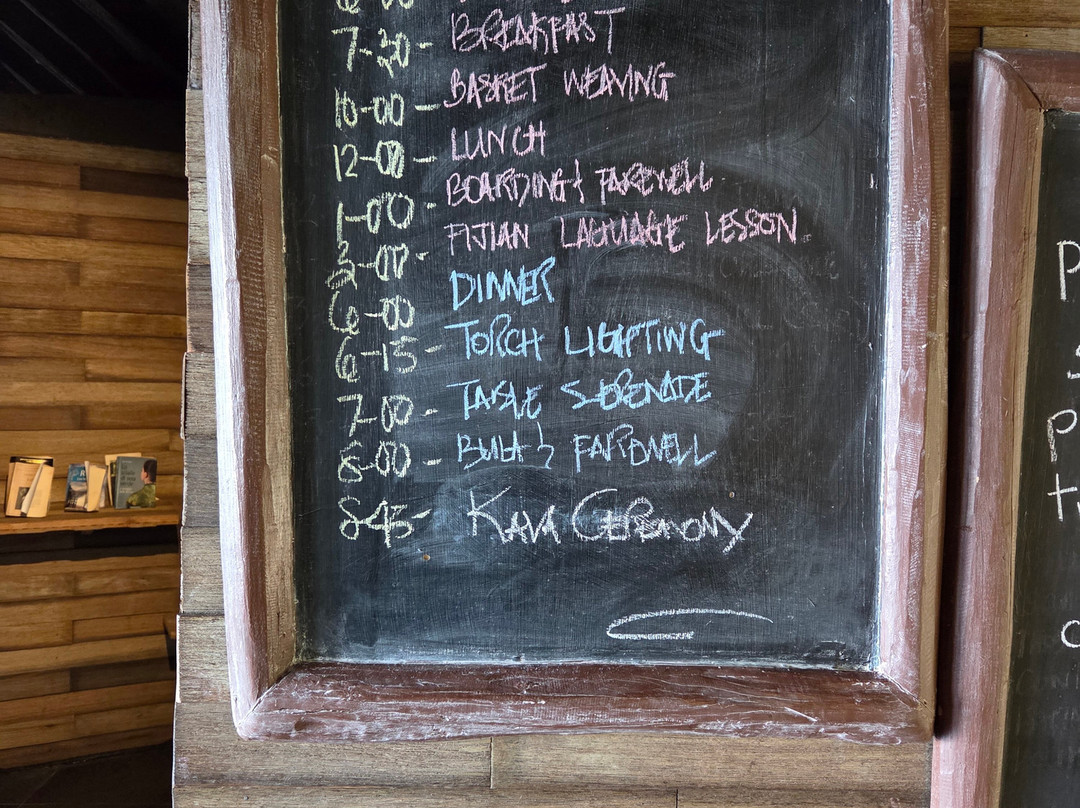 7-30 - BREAKFAST
10-00 - BASKET WEAVING
12-00 - LUNCH
1-00 - BOARDING & FAREWELL
3-00 - FIJIAN LAGUAGE LESSON
6-00 DINNER
6-15 - TORCH LIGHTING
7-00 - TABLE SERENADE
8-00 - BULA & FAREWELL
8-45 - KAVA CEREMONY